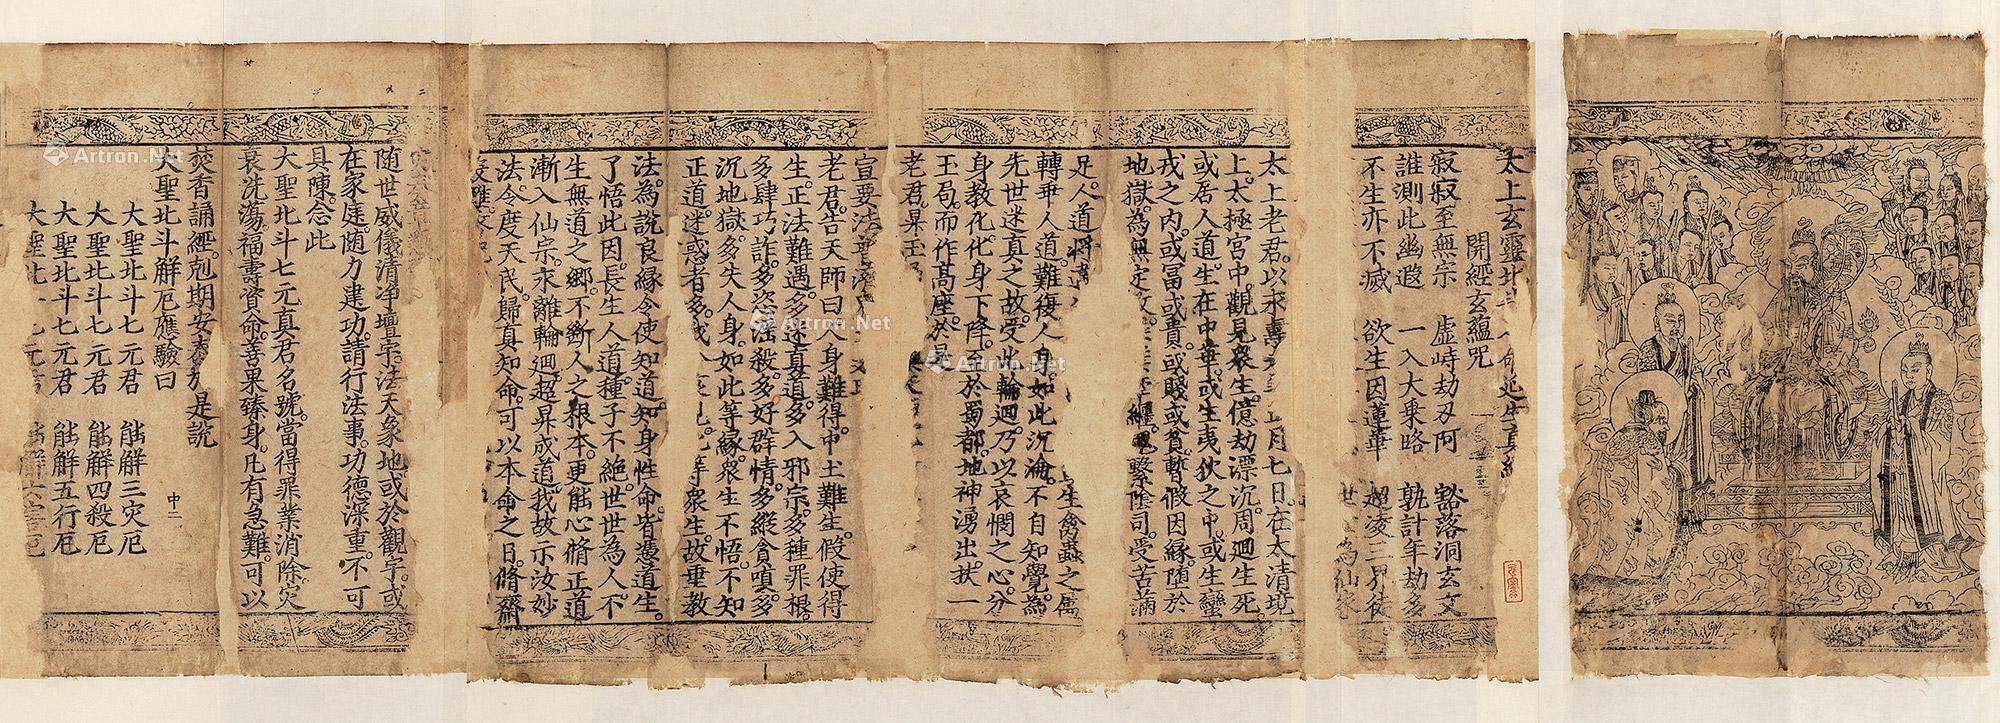 太上玄靈北斗 命延生真經
開經玄蘊咒
寂寂至無宗 虛峙劫刃阿 豁落洞玄文
誰測此幽遐 一入大乗路 孰計年劫多
不生亦不滅 欲生因蓮華 超凌三界徒
世 為仙家
太上老君。以永壽元年正月七日。在太清境
上。太極宮中。觀見衆生。億劫漂沉。周迴生死。
或居人道。生在中華。或生夷狄之中。或生蠻
戎之内。或冨或貴。或賤或貧。暫假因緣。墮於
地獄。為無定故。 纏。魂繫陰司。受苦滿
足。人道將違。 生禽蟲之屬
轉乖人道。難復人身。如此沉淪。不自知覺。為
先世迷真之故。受此輪迴。乃以哀憫之心。分
身教化。化身下降。至於蜀都。地神湧出。扶一
玉局。而作高座。於是
老君。昇玉
宣要法
老君。告天師曰。人身難得。中土難生。假使得
生。正法難遇。多迷真道。多入邪宗。多種罪根。
多肆巧詐。多恣婬殺。多好群情。多縱貪嗔。多
沉地獄。多失人身。如此等緣。衆生不悟。不知
正道。迷惑者多。我 等衆生。故垂教
法。為說良緣。令使知道。知身性命。皆憑道生。
了悟此因。長生人道。種子不絶。世世為人。不
生無道之鄉。不斷人之根本。更能心脩正道
漸入仙宗。永離輪迴。超昇成道。我故示汝妙
法。令度天民。歸真知命。可以本命之日。脩齋
随世威儀。清净壇宇。法天象地。或於觀宇。或
在家庭。随力建功。請行法事。功德深重。不可
具陳。念此
大聖北斗七元真君名號。當得罪業消除。災
衰洗蕩。福壽資命。善果臻身。凡有急難。可以
焚香誦經。剋期安泰。於是說
大聖北斗解厄應驗曰 中二
大聖北斗七元君 能解三灾厄
大聖北斗七元君 能解四殺厄
大聖北斗七元君 能解五行厄
大聖北斗七元君 能解六害厄
Artron.Net
Artron.Net
Artron.Net
Artron.Net